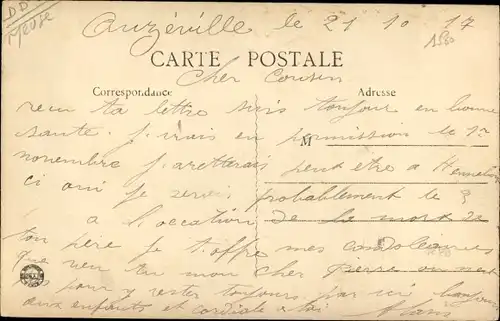 DD
Auzéville le 21 10 17
CARTE POSTALE
Cher Cousin
Correspondance
Adresse
recu ta lettre suis toujour en bonne
santé. J irais en permission le 1er
M
novembre j aretterais peut etre a
ci oui je serais probablement le 3
a l'occation de la mort de
ton père je t'offre mes condoleances
que rien tu mon cher Pierre on nest
pas pour y rester toujours par ici bonjour
aux enfants et cordiale a toi